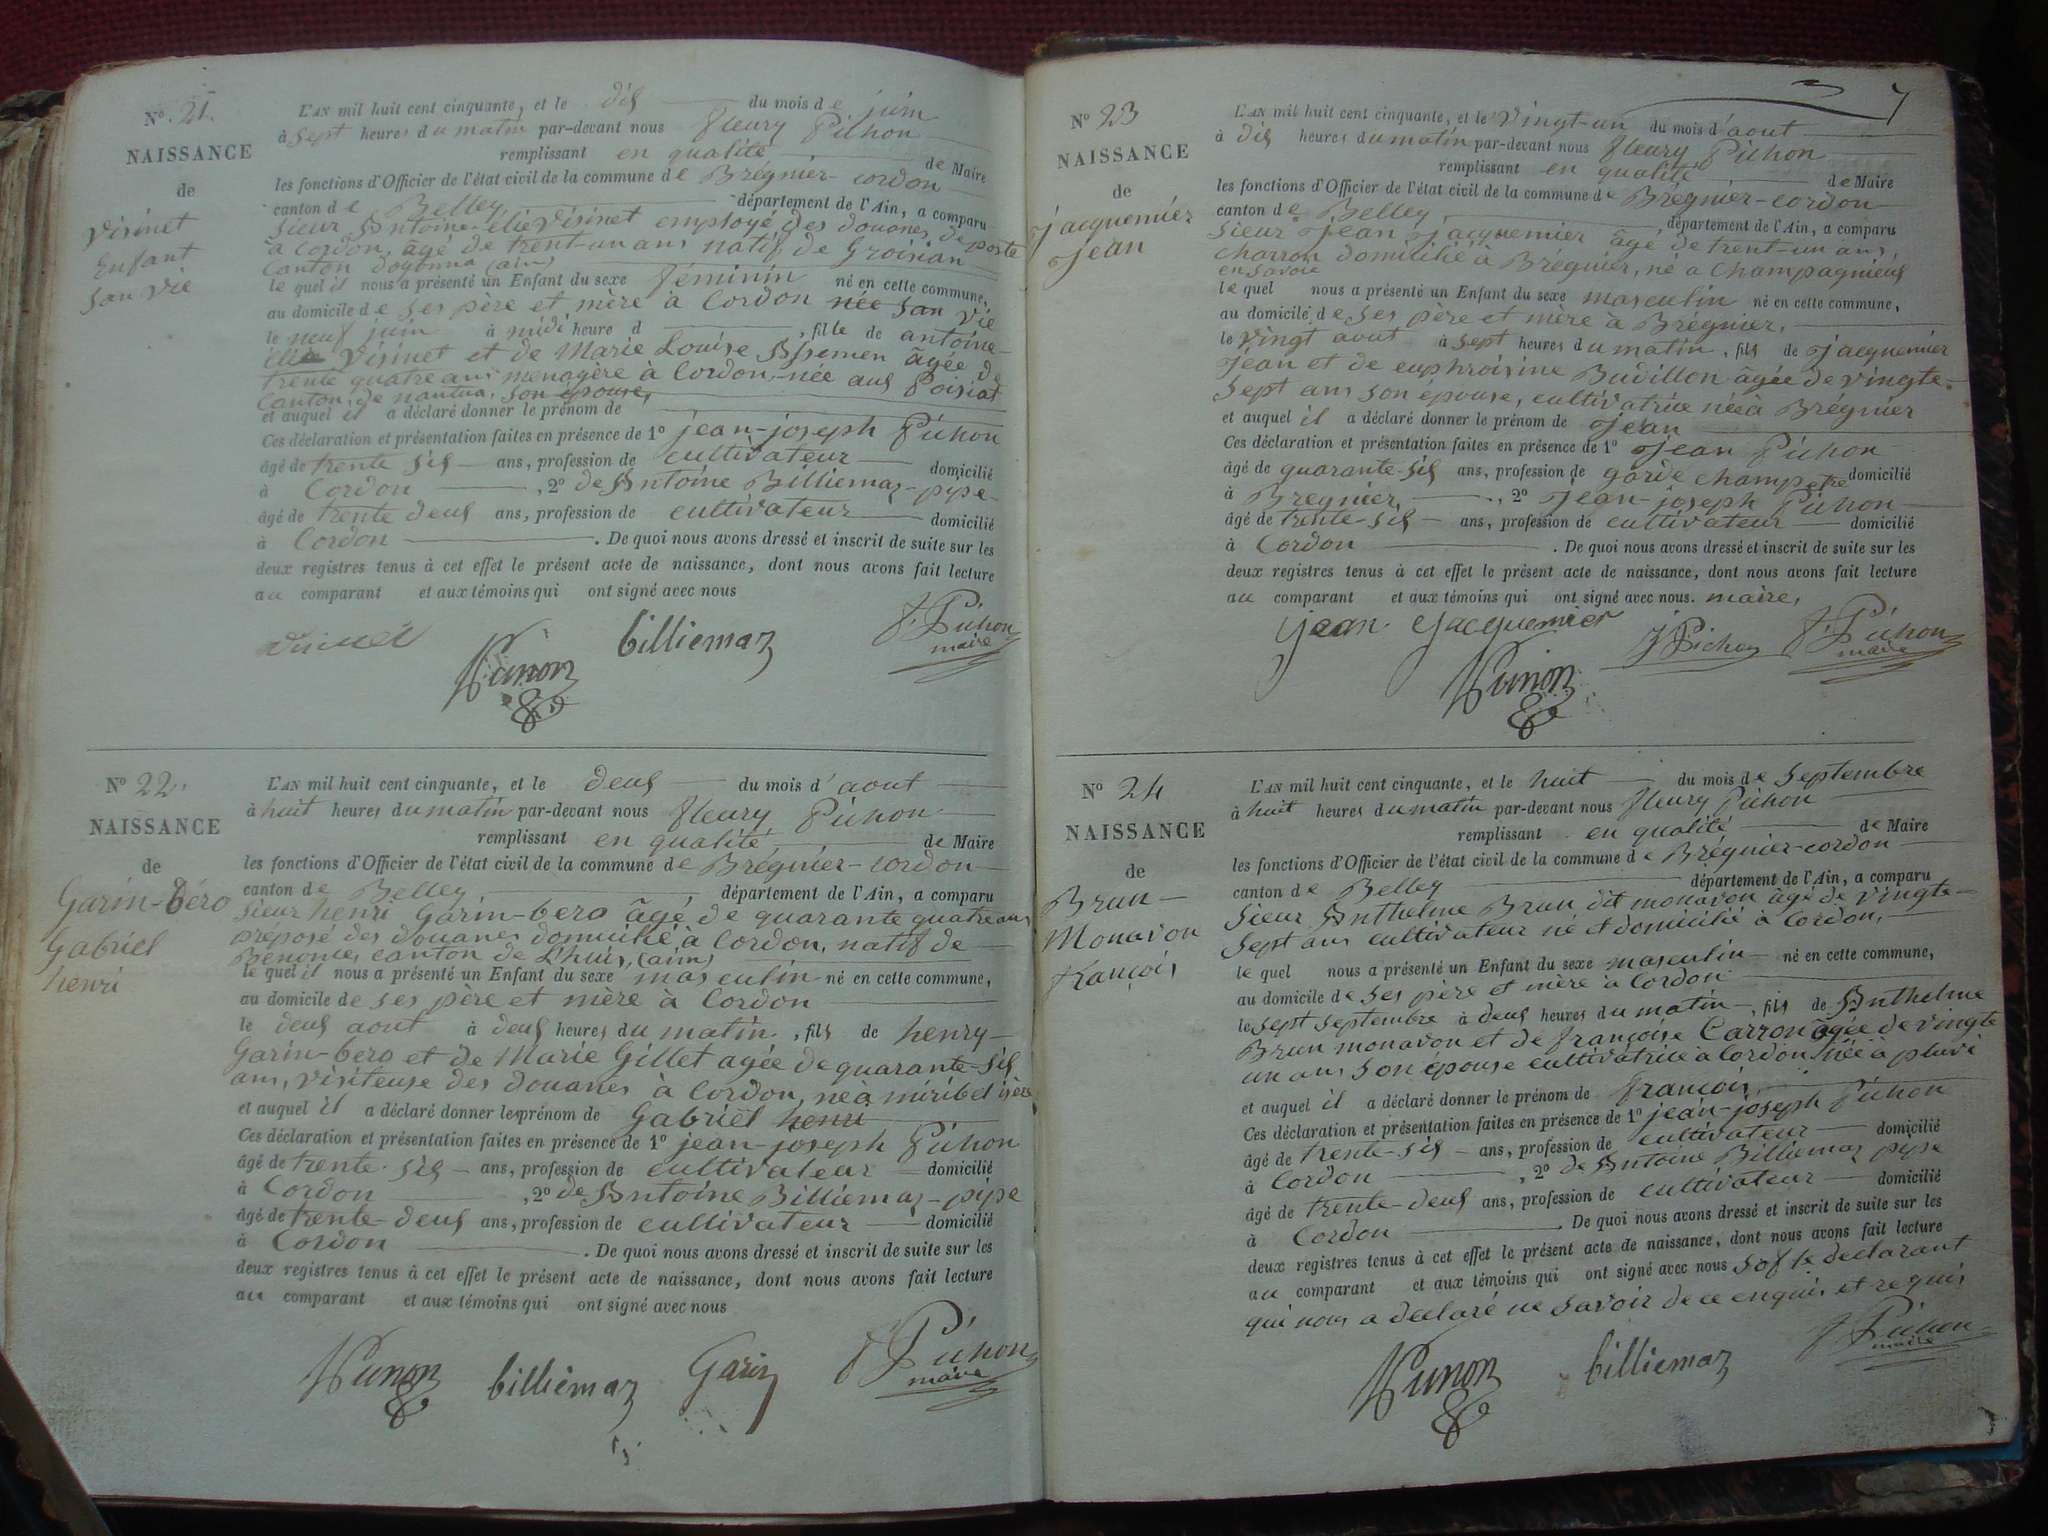 N°. 21.
NAISSANCE
de
Visinet
Enfant
San vie
L'AN mil huit cent cinquante, et le dis du mois de juin
à sept heures du matin par-devant nous fleury Pichon
remplissant en qualité de Maire
les fonctions d'Officier de l'état civil de la commune de Brégnier-cordon
canton de Belley département de l'Ain, a comparu
Sieur Antoine-élie Visinet employé des douanes, de poste
à Cordon, âgé de trent-un ans natif de Groisian
Canton doyonna (ain)
le quel il nous a présenté un Enfant du sexe féminin né en cette commune,
au domicile de ses père et mère à Cordon née San vie
le neuf juin à midi heure d , fille de antoine-
élie Visinet et de Marie Louise âgée de
trente quatre ans menagère à Cordon, née aus Poisiat
Canton de nantua, son épouse,
et auquel il a déclaré donner le prénom de
Ces déclaration et présentation faites en présence de 1° jean-joseph Pichon
âgé de trente sis ans, profession de cultivateur domicilié
à Cordon , 2° de Antoine Billiemaz-pipe
âgé de trente deus ans, profession de cultivateur domicilié
à Cordon . De quoi nous avons dressé et inscrit de suite sur les
deux registres tenus à cet effet le présent acte de naissance, dont nous avons fait lecture
au comparant et aux témoins qui ont signé avec nous
Visinet
Pichon
billiemaz
f. Pichon
maire
N° 22.
NAISSANCE
de
Garin-béro
Gabriel
henri
L'AN mil huit cent cinquante, et le deus du mois d'aout
à huit heures du matin par-devant nous fleury Pichon
remplissant en qualité de Maire
les fonctions d'Officier de l'état civil de la commune de Brégnier-cordon
canton de Belley, département de l'Ain, a comparu
Sieur henri Garin-bero âgé de quarante quatre ans
préposé des douanes domicilié à Cordon, natif de
Benonces canton de L'huis, (ain)
le quel il nous a présenté un Enfant du sexe masculin né en cette commune,
au domicile de ses père et mère à Cordon
le deus aout à deus heures du matin, fils de henry
Garin-bero et de Marie Gillet agée de quarante-sis
ans, visiteuse des douanes à Cordon, né à miribel isère
et auquel il a déclaré donner les prénom de Gabriel henri
Ces déclaration et présentation faites en présence de 1° jean-joseph Pichon
âgé de trente-sis ans, profession de cultivateur domicilié
à Cordon , 2° de Antoine Billiemaz-pipe
âgé de trente-deus ans, profession de cultivateur domicilié
à Cordon . De quoi nous avons dressé et inscrit de suite sur les
deux registres tenus à cet effet le présent acte de naissance, dont nous avons fait lecture
au comparant et aux témoins qui ont signé avec nous
Pichon
billiemaz
Garin
f. Pichon
maire
7
N° 23
NAISSANCE
de
jacquemier
jean
L'AN mil huit cent cinquante, et le vingt-un du mois d'aout
à dis heures du matin par-devant nous fleury Pichon
remplissant en qualité de Maire
les fonctions d'Officier de l'état civil de la commune de Brégnier-cordon
canton de Belley, département de l'Ain, a comparu
Sieur jean jacquemier âgé de trent-un ans,
charron domicilié à Brégnier, né à Champagnieus
en Savoie
le quel nous a présenté un Enfant du sexe masculin né en cette commune,
au domicile de ses père et mère à Brégnier,
le vingt aout à sept heures du matin, fils de jacquemier
jean et de euphroisine Budillon âgée de vingte-
sept ans son épouse, cultivatrice née à Brégnier
et auquel il a déclaré donner le prénom de jean
Ces déclaration et présentation faites en présence de 1° jean Pichon
âgé de quarante-sis ans, profession de garde champetre domicilié
à Bregnier, , 2° jean-joseph Pichon
âgé de trente-sis ans, profession de cultivateur domicilié
à Cordon . De quoi nous avons dressé et inscrit de suite sur les
deux registres tenus à cet effet le présent acte de naissance, dont nous avons fait lecture
au comparant et aux témoins qui ont signé avec nous. maire,
jean jacquemier
Pichon
J Pichon
f. Pichon
maire
N° 24
NAISSANCE
de
Brun-
Monavon
françois
L'AN mil huit cent cinquante, et le huit du mois de septembre
à huit heures du matin par-devant nous fleury Pichon
remplissant en qualité de Maire
les fonctions d'Officier de l'état civil de la commune de Brégnier-cordon
canton de Belley département de l'Ain, a comparu
Sieur Anthelme Brun dit monavon âgé de vingte-
sept ans cultivateur né et domicilié à Cordon,
le quel nous a présenté un Enfant du sexe masculin né en cette commune,
au domicile de ses père et mère à Cordon
le sept septembre à deus heures du matin, fils de Anthelme
Brun monavon et de françoise Carron âgée de vingte
un ans son épouse cultivatrice à Cordon née à
et auquel il a déclaré donner le prénom de françois,
Ces déclaration et présentation faites en présence de 1° jean-joseph Pichon
âgé de trente-sis ans, profession de cultivateur domicilié
à Cordon , 2° de Antoine Billiemaz pipe
âgé de trente-deus ans, profession de cultivateur domicilié
à Cordon . De quoi nous avons dressé et inscrit de suite sur les
deux registres tenus à cet effet le présent acte de naissance, dont nous avons fait lecture
au comparant et aux témoins qui ont signé avec nous sof le declarant
qui nous a declaré ne savoir de ce enquis et requis
Pichon
billiemaz
f. Pichon
maire